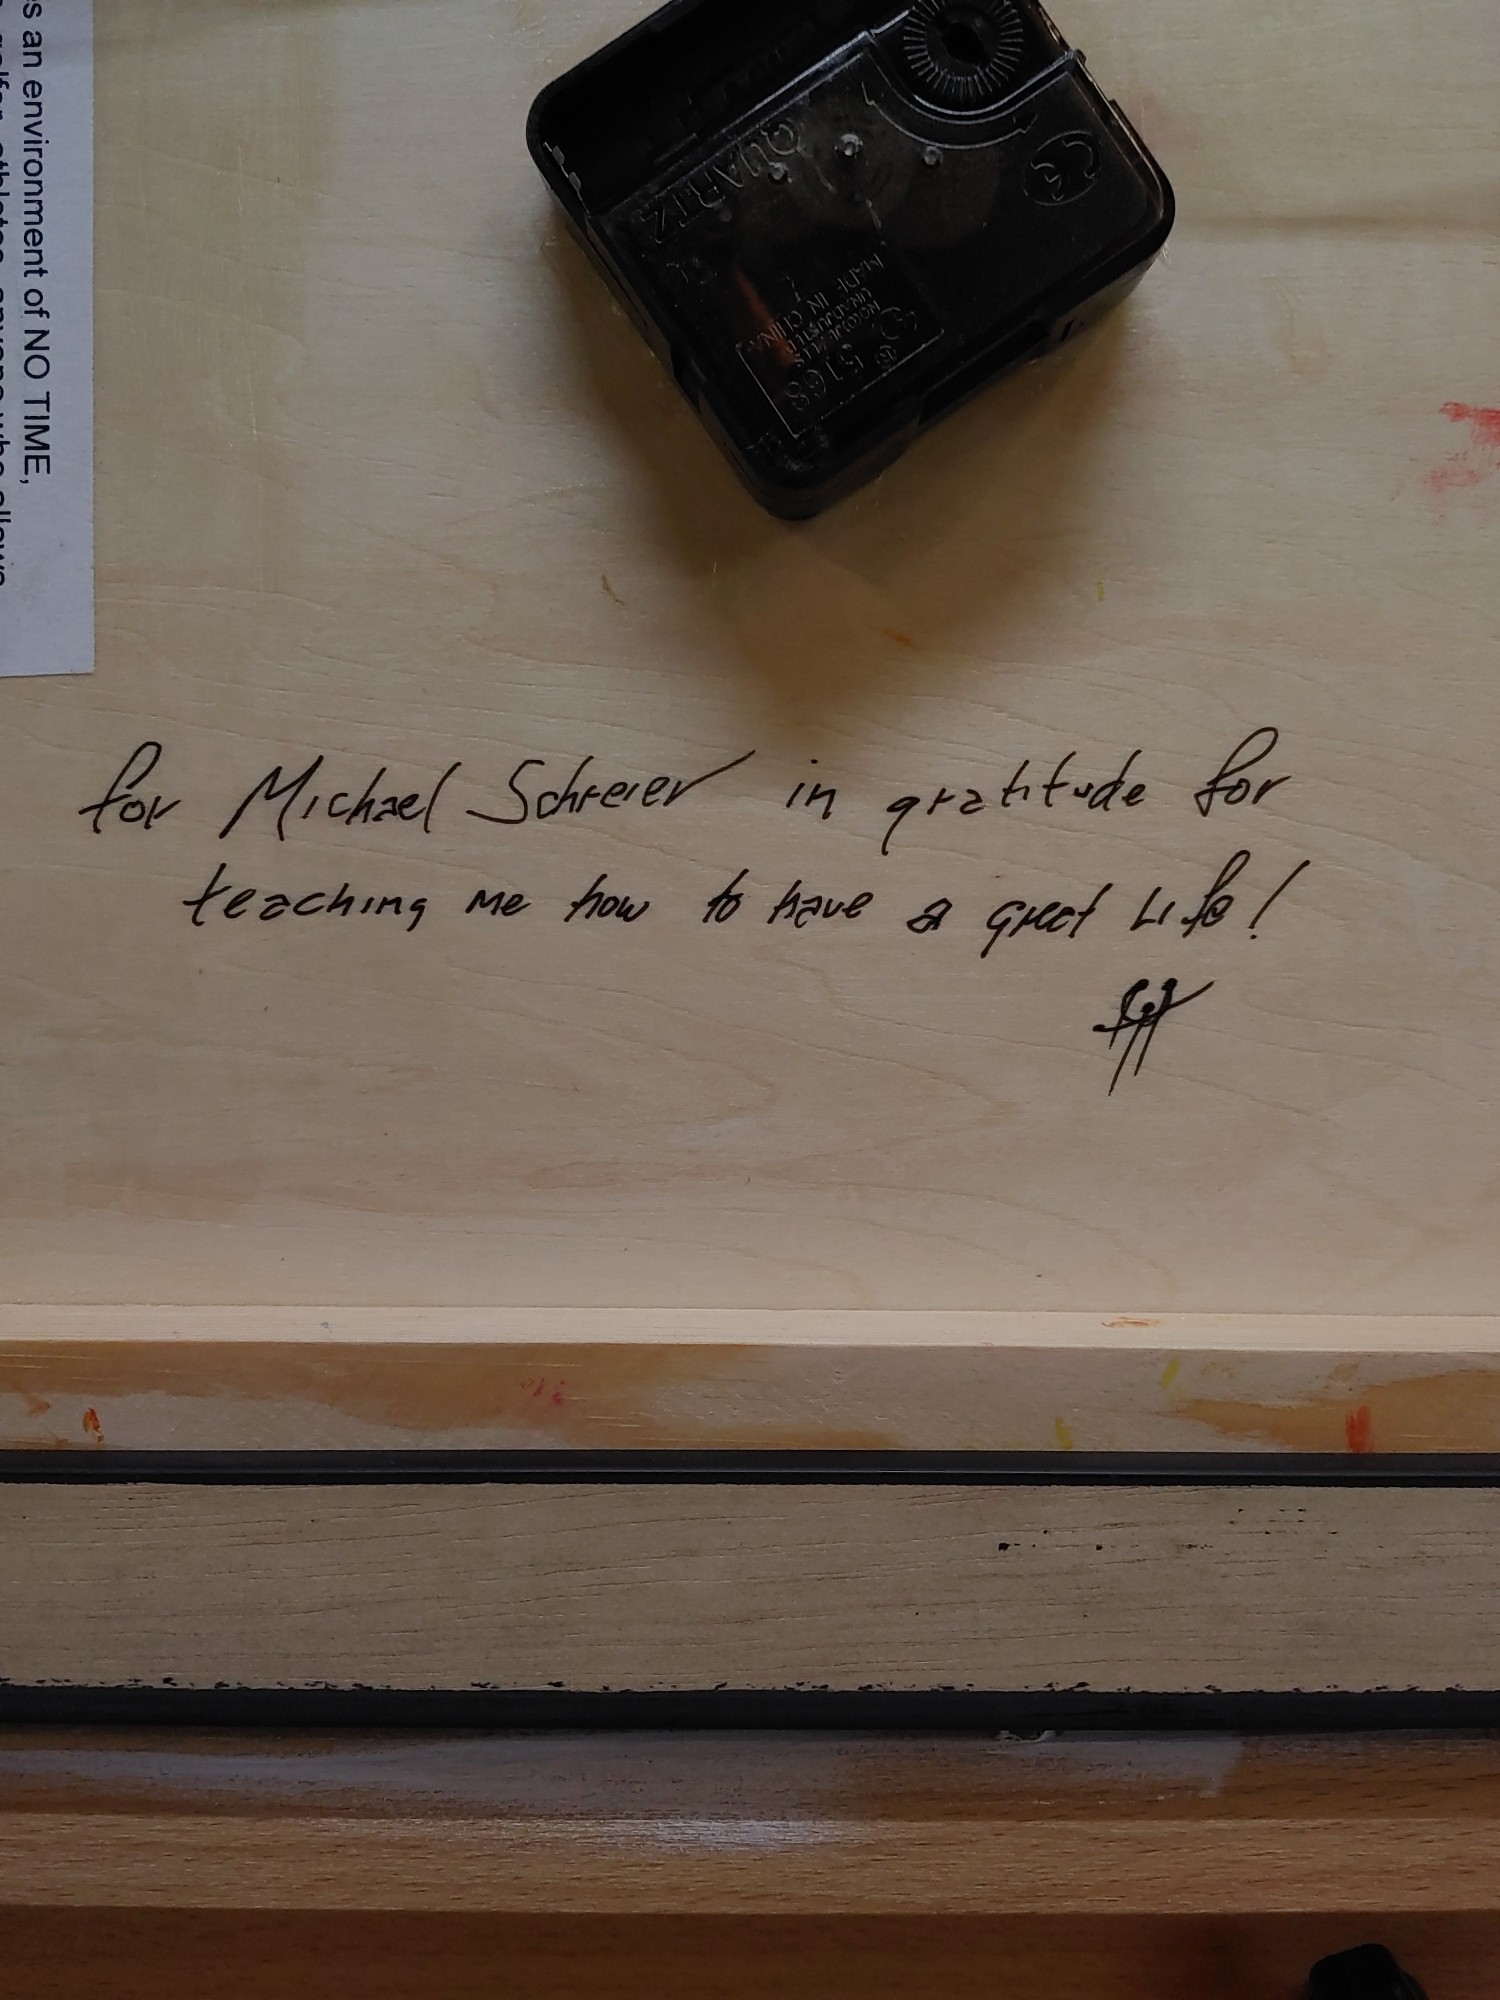 es an environment of NO TIME,
QUARTZ
MADE IN CHINA
UNADJUSTED
NO(0)JEWELS
6168
CE
for Michael Schreier in gratitude for
teaching me how to have a great Life!